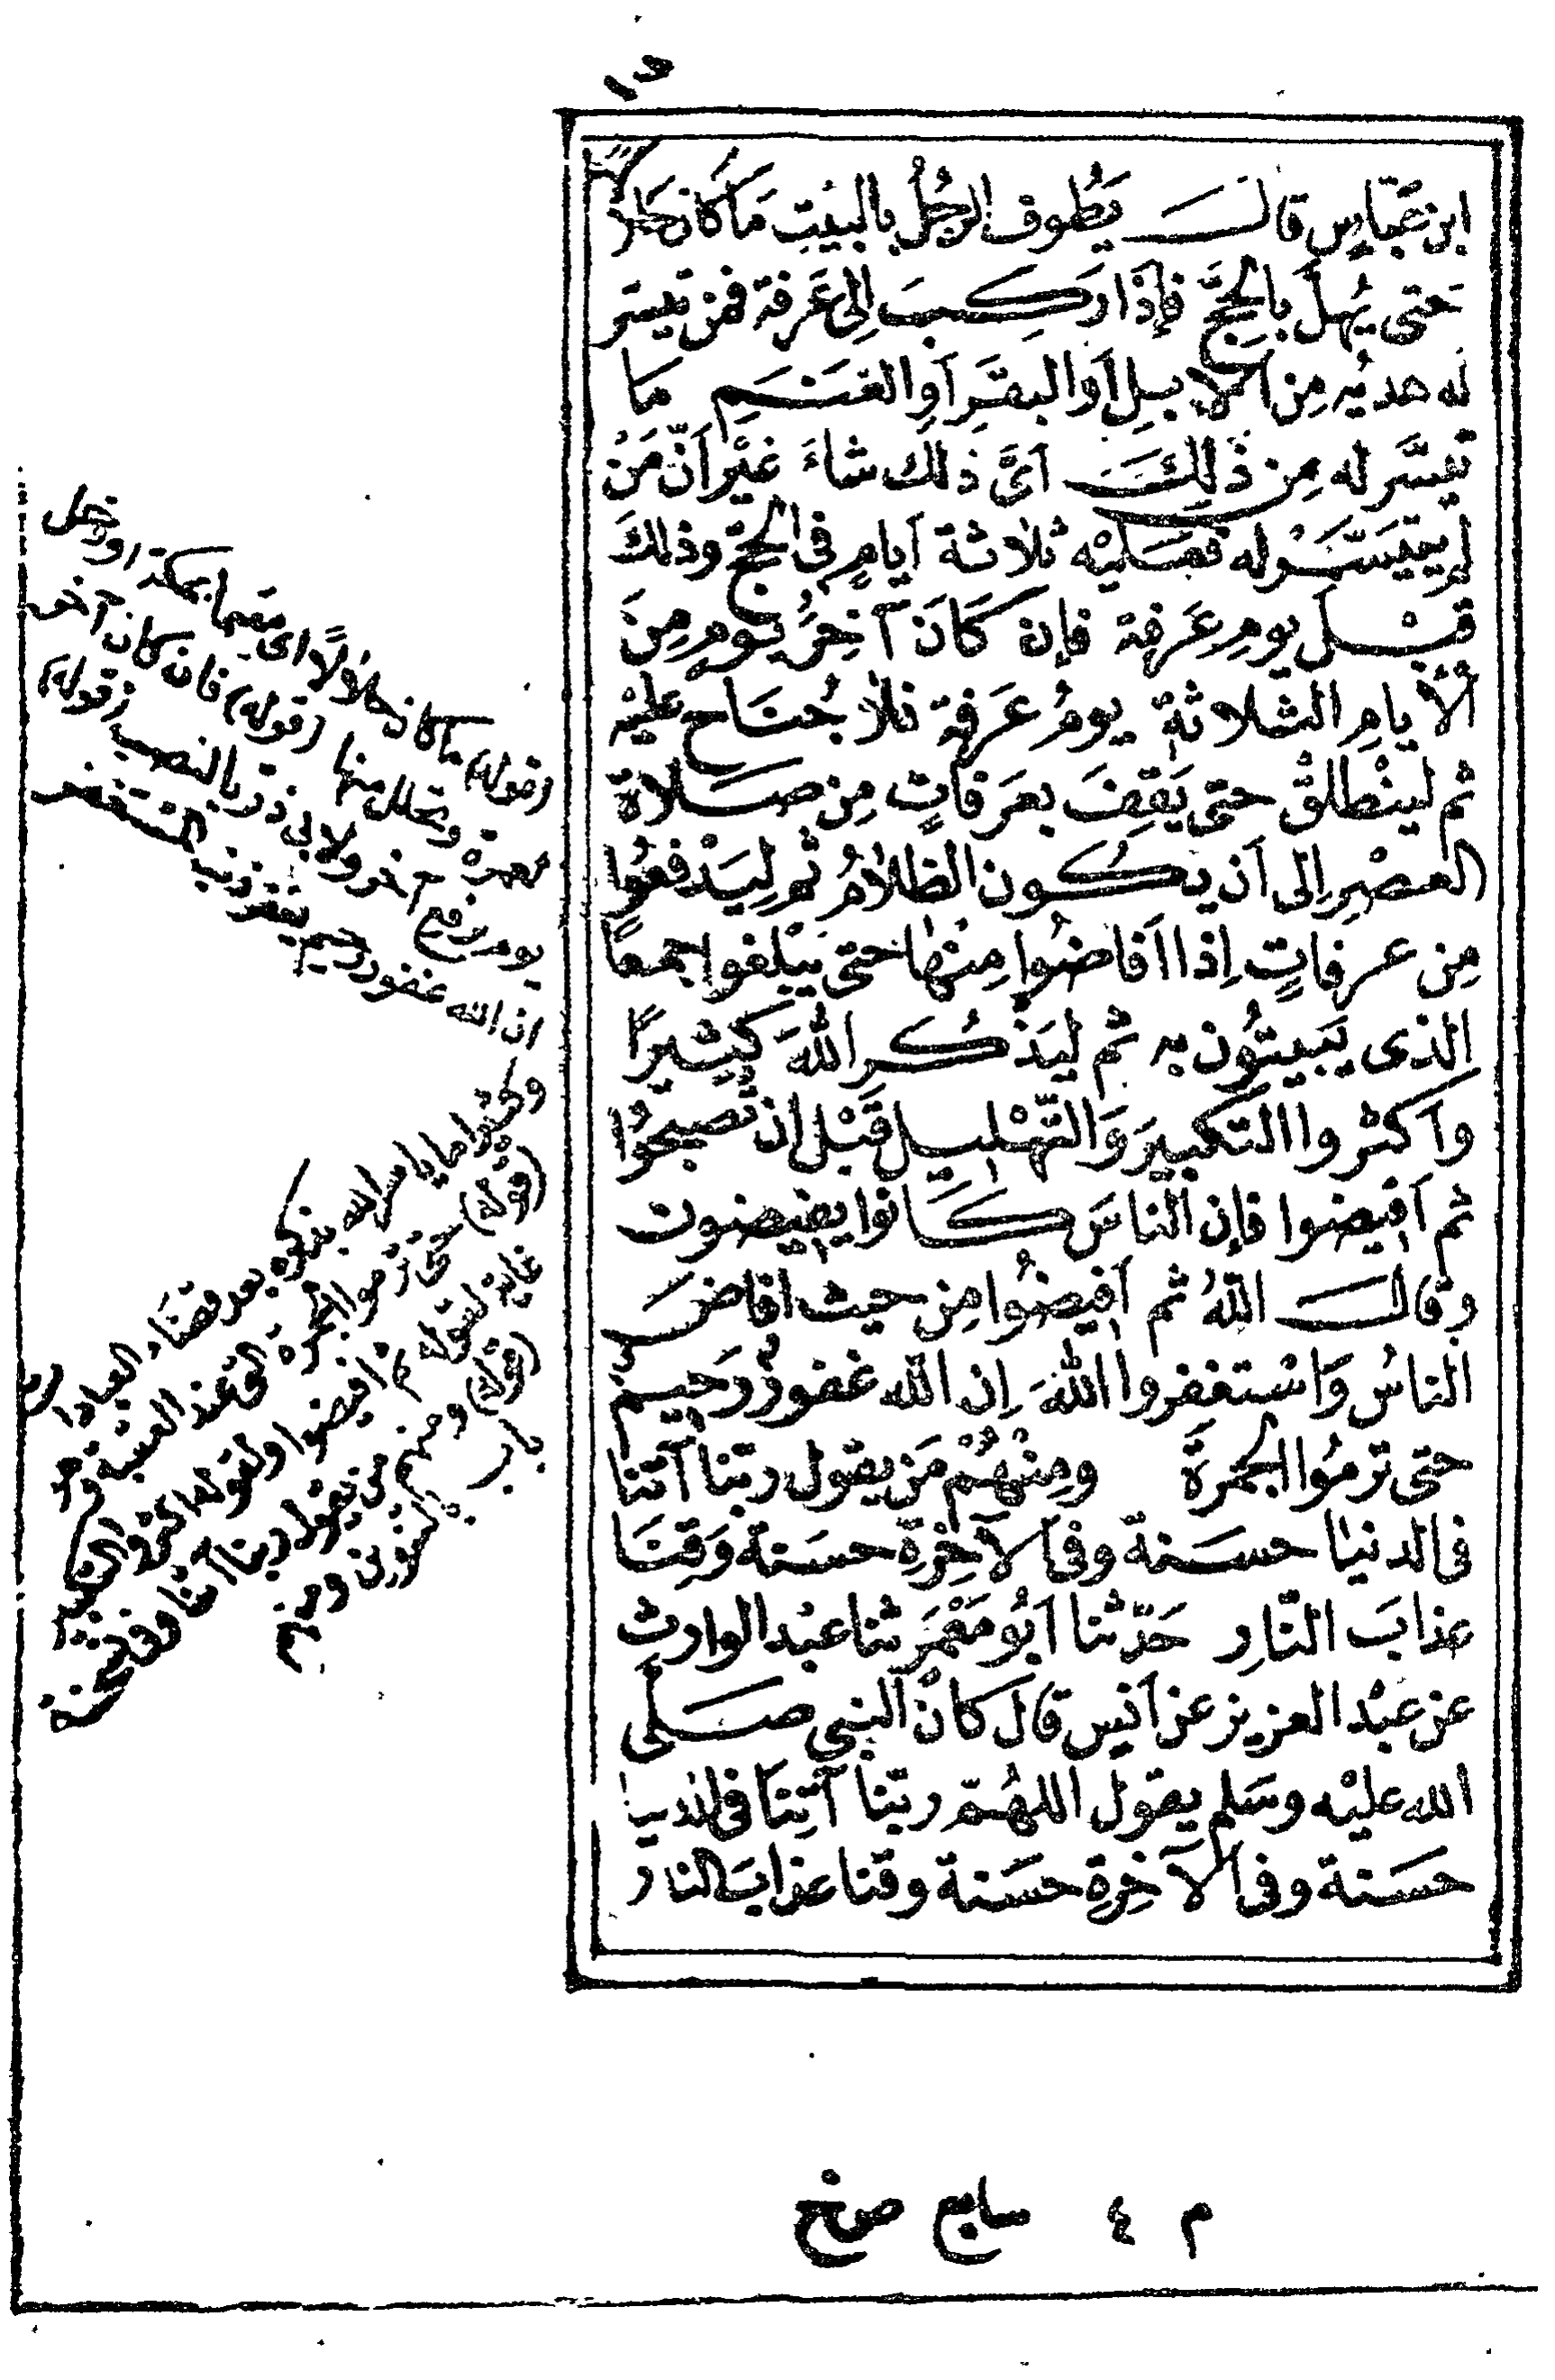 ابن عَبّاسٍ قالَ يَطُوف الرجُلُ بالبيْتِ مَا كَانَ حَلالاً
حَتى يُهِلَّ بالحَجِّ فإِذَا رَكِبَ إِلى عَرَفة فمن تيسَّر
له هديُه مِن الإبِلِ أوَ البقَرِ أوِ الغَنَمِ مَا
تيسَّر له مِن ذَلِكَ أىَّ ذَلك شاءَ غَيْرَ أنّ مَنْ
لم يتيَسَّرْ له فعَلَيْه ثلاثة أيامٍ فى الحجّ وذلكَ
قبْلَ يومِ عَرَفة فإن كَانَ آخِرُ يومٍ مِنَ
الأيامِ الثلاثةِ يومُ عَرَفة فلا جُنَاحَ عليْه
ثم لينْطلقْ حتى يَقِفَ بعَرَفاتٍ مِن صَلاة
العصْرِ إلى أن يكُون الظلامُ ثم لِيَدْفعُوا
مِن عرفاتٍ إذا أفاضُوا مِنْها حتى يبْلغوا جمعًا
الذى يَبيتُون به ثم ليَذْكُر اللهَ كثِيرًا
وأكثروا التكبيرَ وَالتّهْليل قَبْل ان تُصبحُوا
ثم أفيضوا فإن الناسَ كَانوا يفيضون
وقالَ اللهُ ثم أفيضُوا مِن حيث افاضَ
الناسُ وَاسْتغفروا اللهَ إن الله غفورٌ رَحيم
حتى ترمُوا الجمرةَ ومِنْهُمْ مَن يقول ربّنا آتنا
فى الدنيا حسَنة وفى الآخِرَة حسَنة وَقِنَا
عذابَ النّارِ حَدّثنا أبُو مَعْمَر ثنا عبْد الوارث
عن عبْد العزيز عن أنسٍ قال كانَ النبى صَلى
الله عليْه وسَلم يقول اللهُمّ ربّنا آتِنَا فى الدنيا
حسَنة وفى الآخِرةِ حسَنة وقنا عذابَ النار
(قوله) ما كان حلالاً اى مقيما بمكة او دخل
بعمرة وتحلل منها (قوله) فان كان آخر
يوم برفع آخر ولابى ذر بالنصب (قوله)
ان الله غفور رحيم يغفر ذنب المستغفر
وكثيرا ما يامر الله بذكره بعد قضاء العبادات
(قوله) حتى ترموا الجمرة التى عند العقبة وهو
غاية لقوله ثم افيضوا
(قوله) ومنهم من يقول ربنا آتنا
باب بالتنوين ومنهم
م ٤ سابع صخ